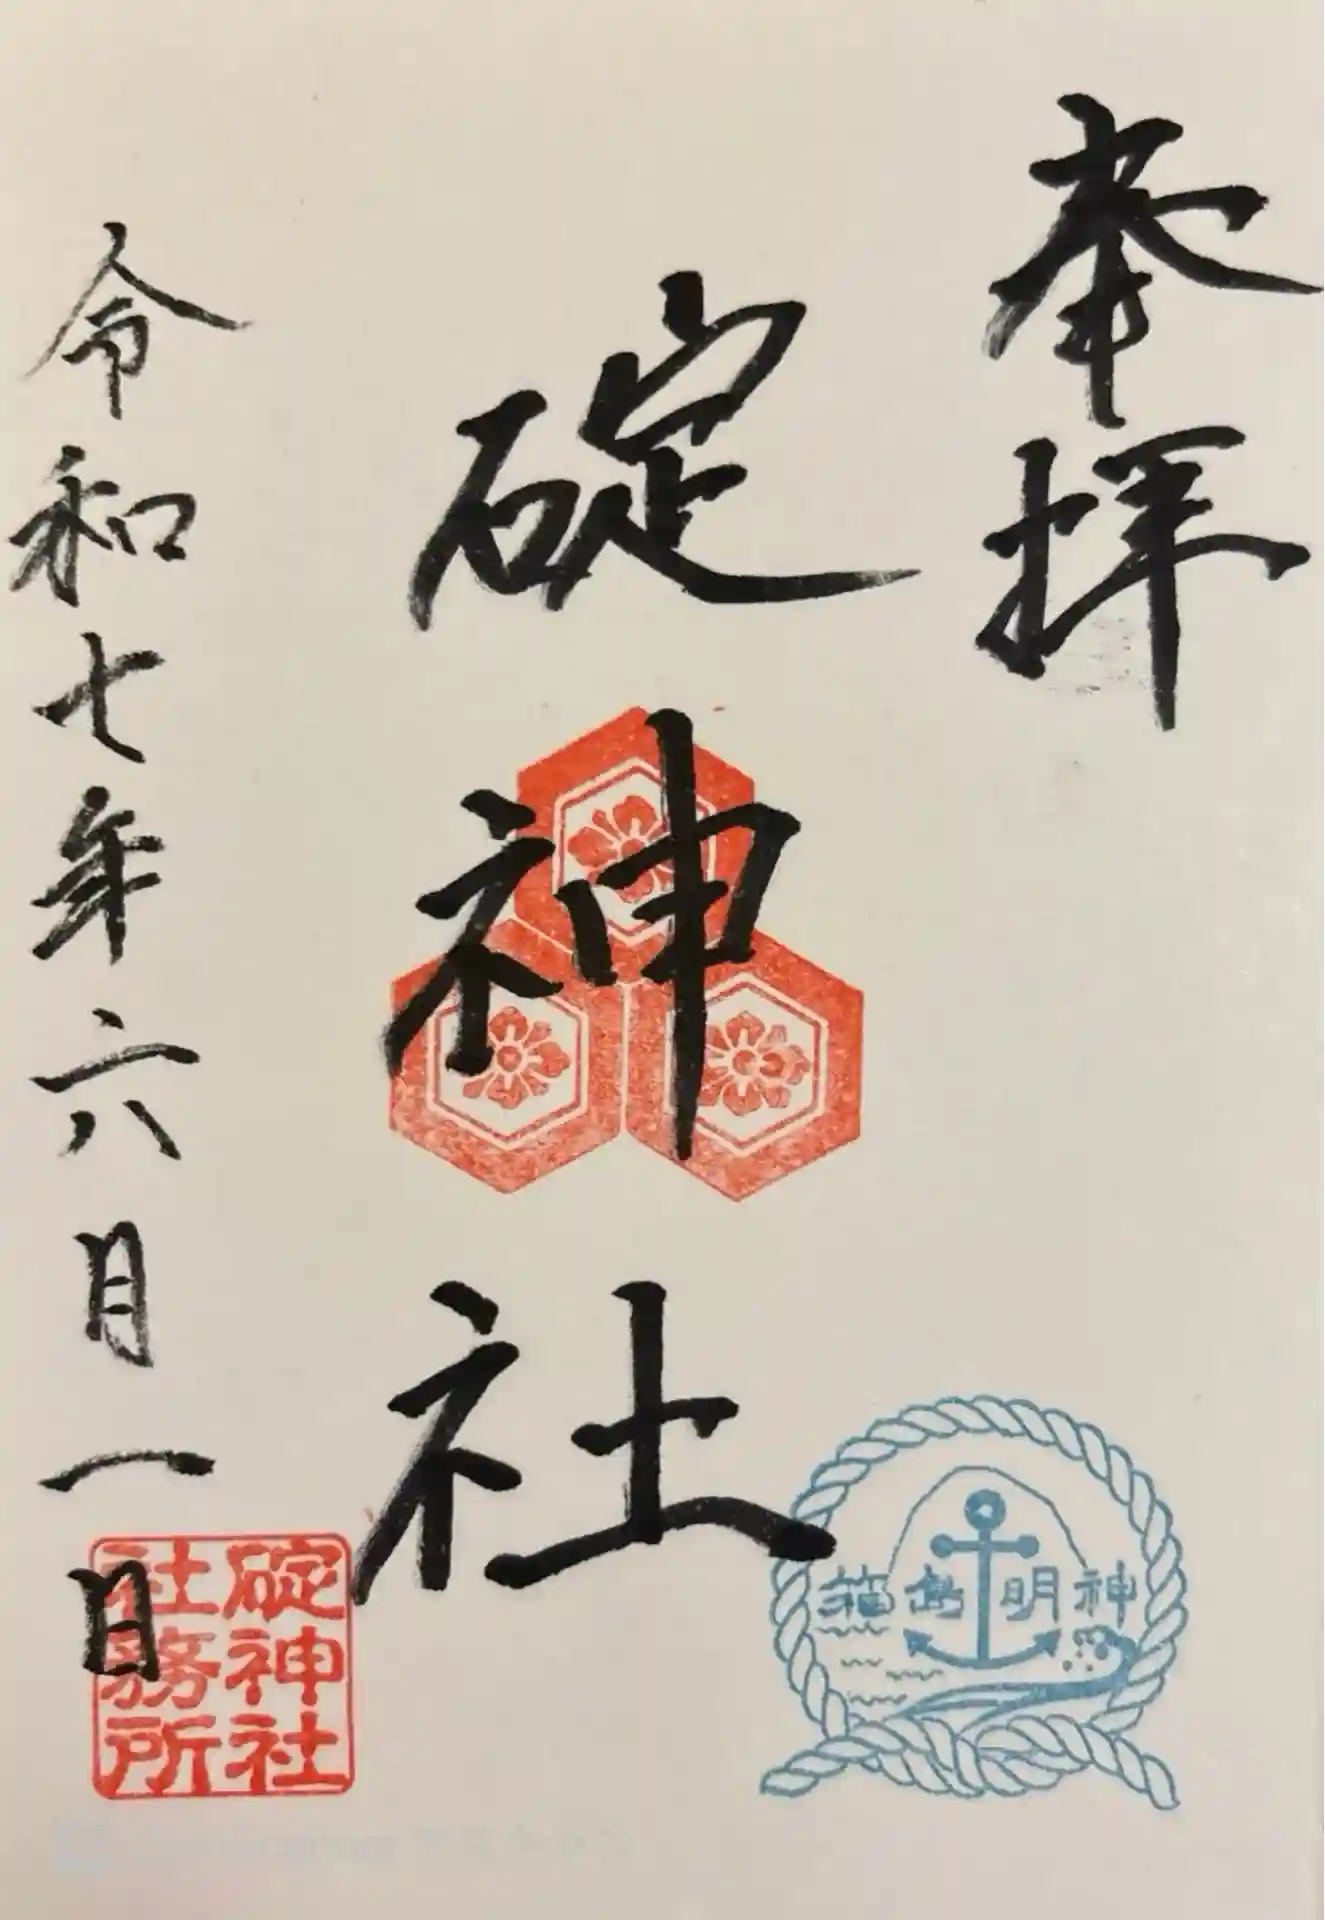 奉拝
碇神社
令和七年六月一日
神明
碇神社
社務所